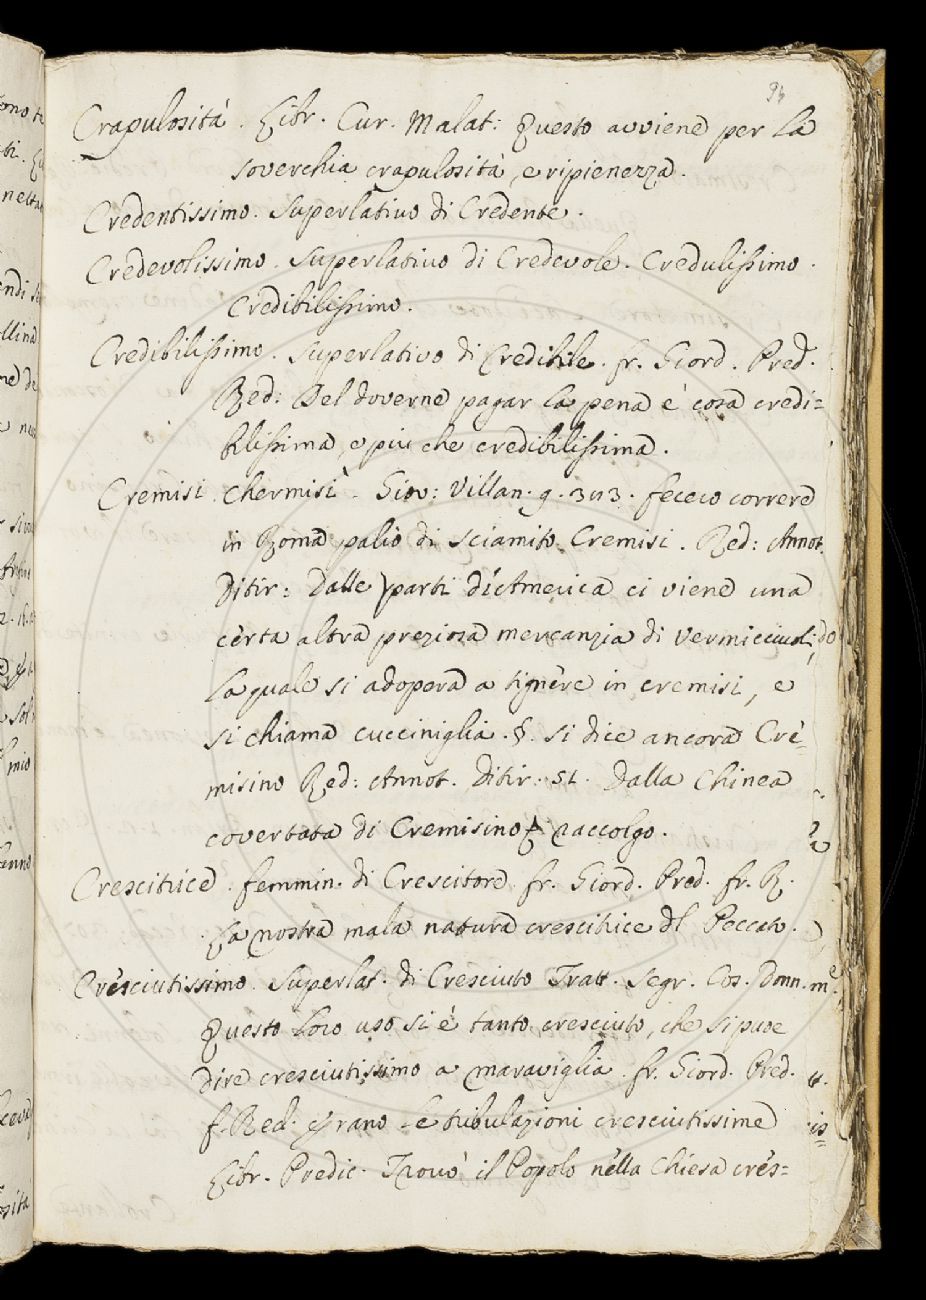 94
Crapulosità. Libr. Cur. Malat: Questo avviene per la
soverchia crapulosità, e ripienezza.
Credentissimo. Superlativo di Credente.
Credevolissimo. Superlativo di Credevole. Credulissimo.
Credibilissimo.
Credibilissimo. Superlativo di Credibile. fr. Giord. Pred.
Red: Del doverne pagar la pena è cosa credi=
bilissima, e più che credibilissima.
Cremisi. Chermisì. Giov: Villan. 9. 303. feceo correre
in Roma palio di sciamito Cremisi. Red: Annot.
Ditir: Dalle parti d'America ci viene una
certa altra preziosa mercanzia di vermicciuoli,
la quale si adopera a tignere in cremisi, e
si chiama cucciniglia. §. si dice ancora Cre=
misino Red: Annot. Ditir. 51. Dalla Chinea
covertata di Cremisino raccolgo.
Crescitrice. femmin. di Crescitore fr. Giord. Pred. fr. R.
La nostra mala natura crescitrice dl Peccato.
Cresciutissimo. Superlat. di Cresciuto Tratt. Segr. Cos. Donn.
Questo loro uso si è tanto cresciuto, che si puoe
dire cresciutissimo a maraviglia. fr. Giord. Pred.
f. Red. Erano le tubulazioni cresciutissime
Libr. Predic. Trovò il Popolo nella Chiesa cres=